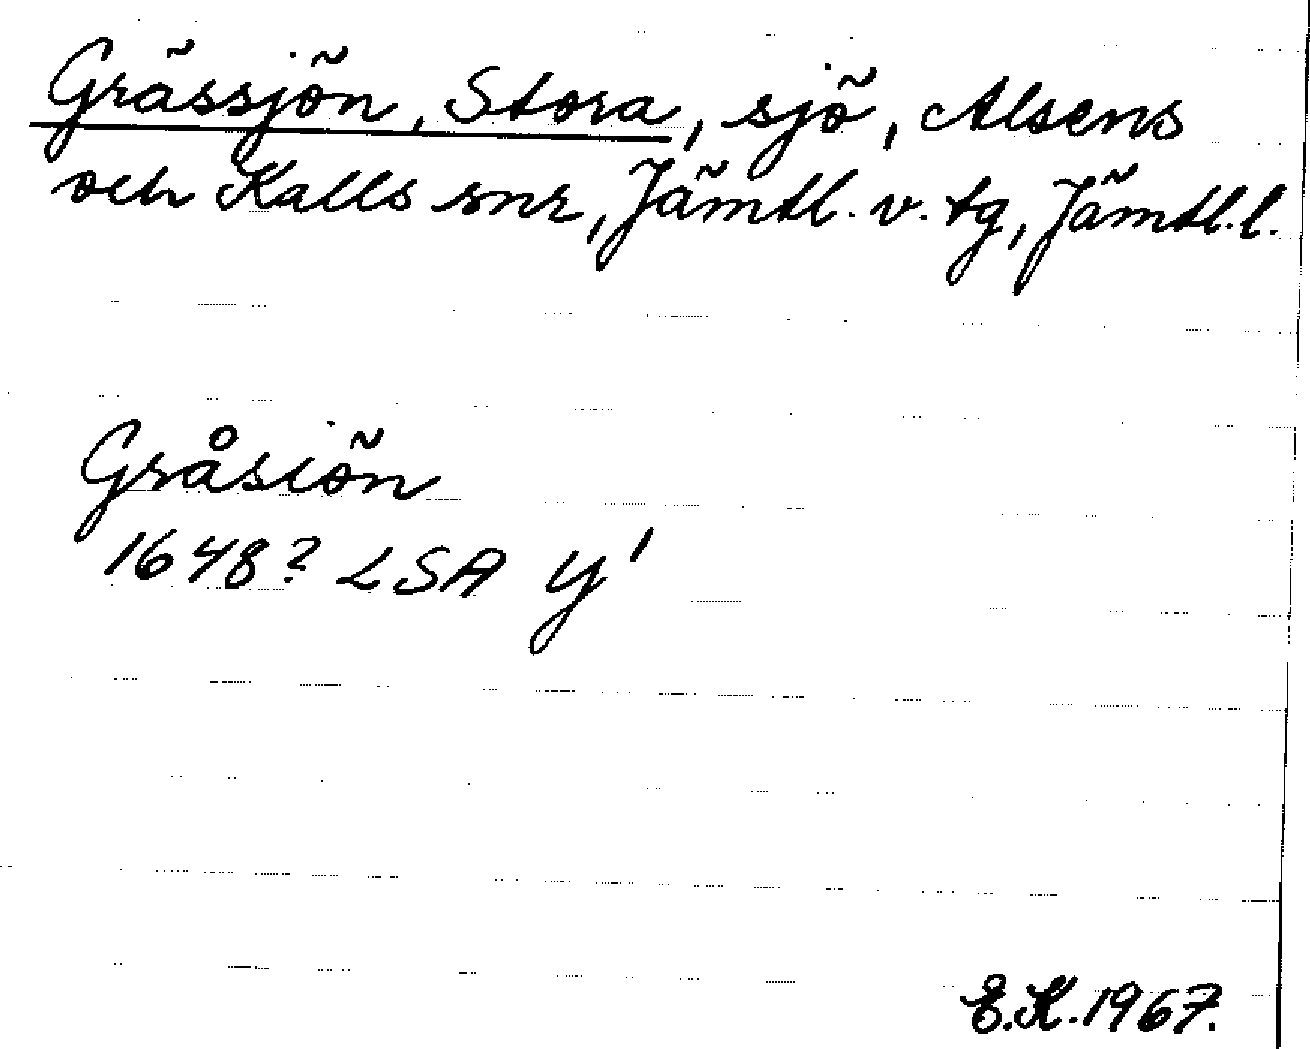 Grässjön, Stora, sjö, Alsens
och Kalls snr, Jämtl. v. tg, Jämtl. l.
Gråsiön
1648? LSA Y'
E.K. 1967.